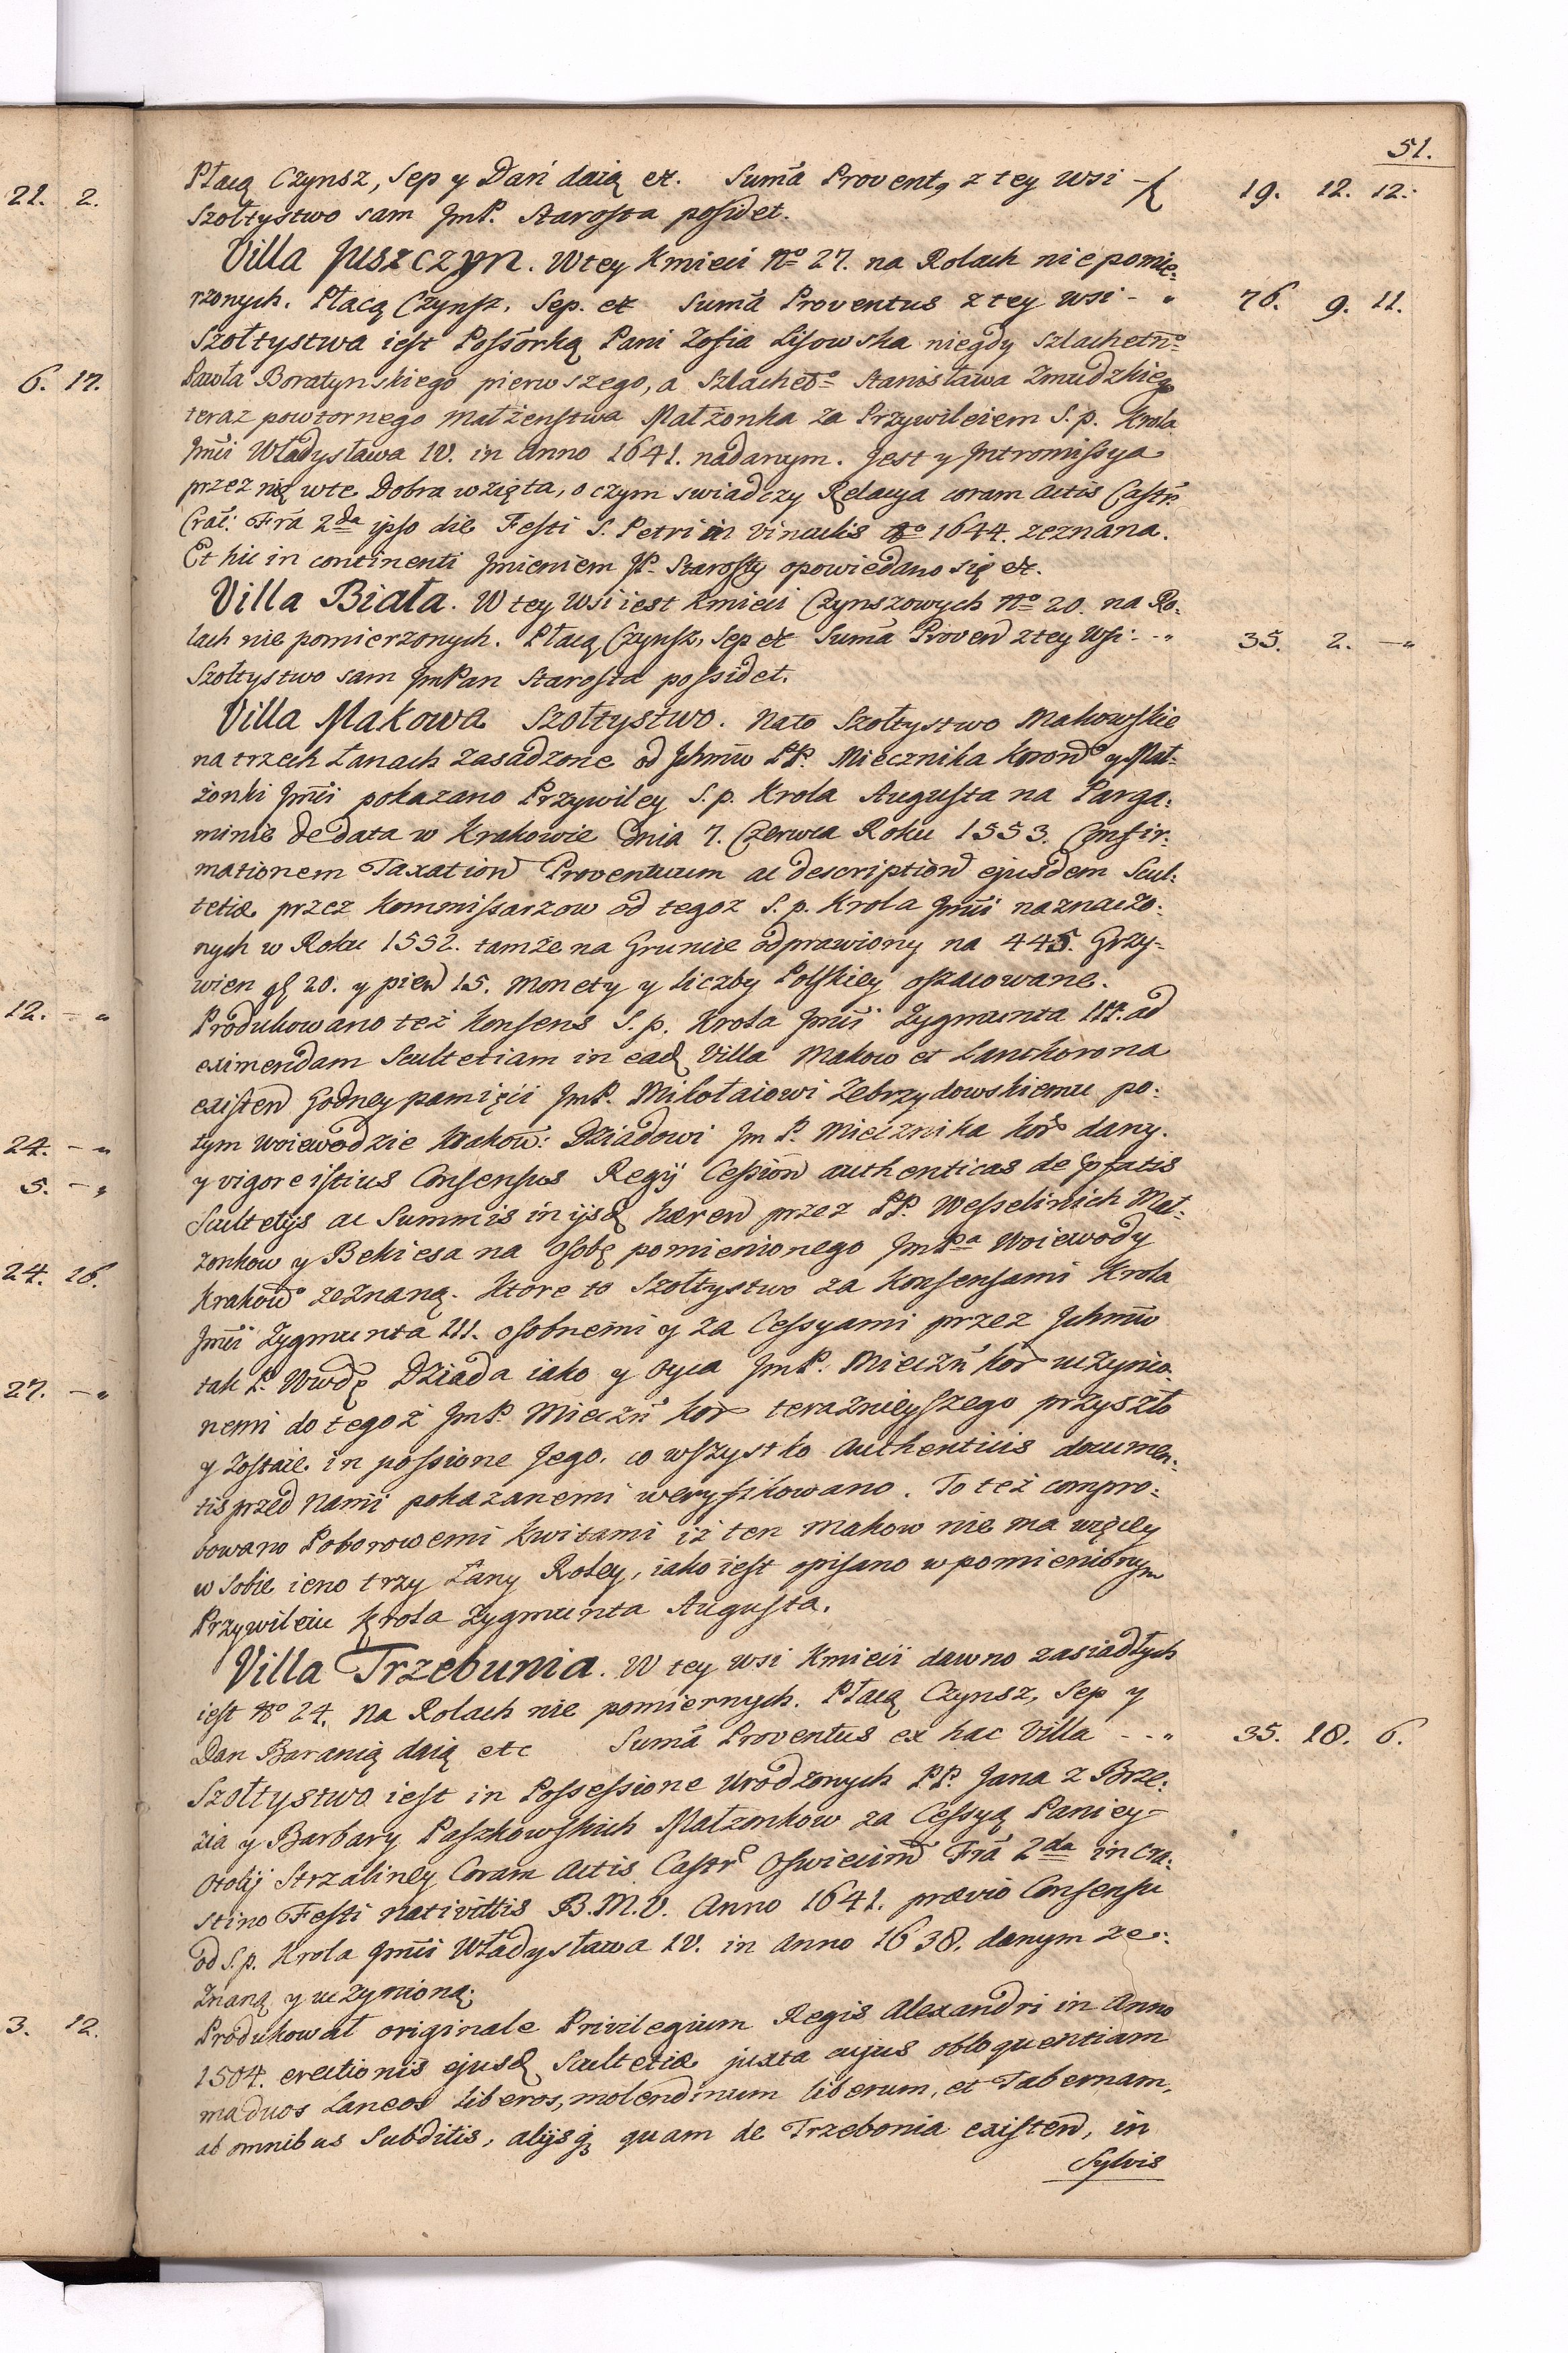 51.
Płacą Czynsz, Sep y Dań daią etc. Sumã Provent9 z tey wsi - f 19. 12. 12.
Szołtystwo sam JmP. Starosta possidet.
Villa Juszczyn. W tey Kmieci No 27. na Rolach nie pomie:
rzonych. Płacą Czynsz, Sep. etc Sumã Proventus z tey wsi - " 76. 9. 11.
Szołtystwa iest Possorką Pani Zofia Lisowska niegdy Szlachetno
Pawła Boratynskiego pierwszego, a Szlacheto Stanisława Zmudzkiego
teraz powtornego Małżenstwa Małżonka za Przywileiem S. p. Krola
Jmci Władysława IV. in Anno 1641. nadanym. Jest y Intromissya
przez nię w te Dobra wzięta, o czym swiadczy Relacya coram Actis Castr.
Crac: Fra 2da ipso die Festi S. Petri in vinculis Ao 1644. zeznana.
Et hic in continenti Jmieniem JP. Starosty opowiedano się etc.
Villa Biała. W tey Wsi iest Kmieci Czynszowych No 20. na Ro:
lach nie pomierzonych. Płacą Czynsz, Sep etc Sumã Proven z tey Wsi: - " 35. 2. - "
Szołtystwo sam JmPan Starosta possidet.
Villa Makowa Szołtystwo. Na to Szołtystwo Makowskie
na trzech Łanach zasadzone od Ichmw PP. Miecznika Koron y Mał:
żonki Jmci pokazano Przywiley S. p. Krola Augusta na Parga:
minie de data w Krakowie dnia 7. Czerwca Roku 1553. Confir:
mationem Taxation Proventuum ac description ejusdem Scul:
tetiæ przez Kommissarzow od tegoz S. p. Krola Jmci naznaczo:
nych w Roku 1552. tamże na Gruncie odprawiony na 445. Grzy-
wien gr 20. y pien 15. Monety y liczby Polskiey oszacowane.
Produkowano też Konsens S. p. Krola Jmci Zygmunta III. ad
eximendam Scultetiam in ead Villa Makow et Lanckorona
existen Godney pamięci JmP. Mikołaiowi Zebrzydowskiemu po:
tym Woiewodzie Krakow: Dziadowi Jm P. Miecznika Kor dany.
y vigore istius Consensus Regij Cession authenticas de pfatis
Scultetijs ac Summis in ijsd hæren przez PP. Wesselinich Mał:
żonkow y Bekiesa na Osobę pomienionego JmPa Woiewody
Krakow zeznaną. Ktore to Szołtystwo za Konsensami Krola
Jmci Zygmunta III. osobnemi y za Cessyami przez Ichmw
tak P. Wwdę Dziada iako y Oyca JmP. Mieczn Kor uczynio:
nemi do tegoż JmP. Mieczn Kor teraznieyszego przyszło
y zostaie in possione Jego. co wszystko Authenticis documen:
tis przed nami pokazanemi weryfikowano. To też compro:
bowano Poborowemi Kwitami iż ten Makow nie ma więcey
w sobie ieno trzy Łany Roley, iako iest opisano w pomienionym
Przywileiu Krola Zygmunta Augusta.
Villa Trzebunia. W tey wsi Kmieci dawno zasiadłych
iest No 24. Na Rolach nie pomiernych. Płacą Czynsz, Sep y
Dan Baranią daią etc Sumã Proventus ex hac Villa - - " 35. 18. 6.
Szołtystwo iest in Possessione Urodzonych PP. Jana z Brze:
zia y Barbary Paszkowskich Małzonkow za Cessyą Paniey
Otolij Strzaliney Coram Actis Castr Oswiecim Fra 2da in Cra:
stino Festi nativittis B.M.V. Anno 1641. prævio Consensu
od S. p. Krola Jmci Władysława IV. in Anno 1638. danym ze:
znaną y uczynioną.
Produkował originale Privilegium Regis Alexandri in Anno
1504. erectionis ejusd Scultetiæ juxta cujus obloquentiam
ma duos Laneos liberos, molendinum liberum, et Tabernam,
ab omnibus Subditis, alijsq quam de Trzebonia existen, in
Sylvis
21. 2.
6. 17.
12. - "
24. - "
5. - "
24. 16.
27. - "
3. 12.